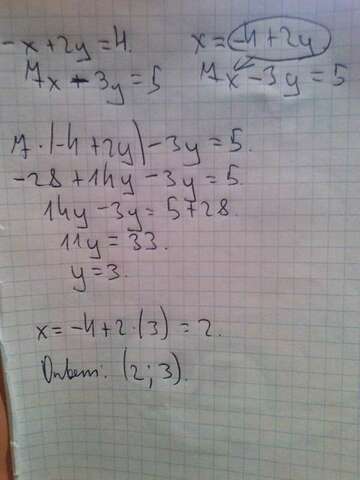 -x+2y=4. x=-4+2y
7x-3y=5 7x-3y=5
7·(-4+2y)-3y=5.
-28+14y-3y=5.
14y-3y=5+28.
11y=33.
y=3.
x=-4+2·(3)=2.
Ответ: (2;3).